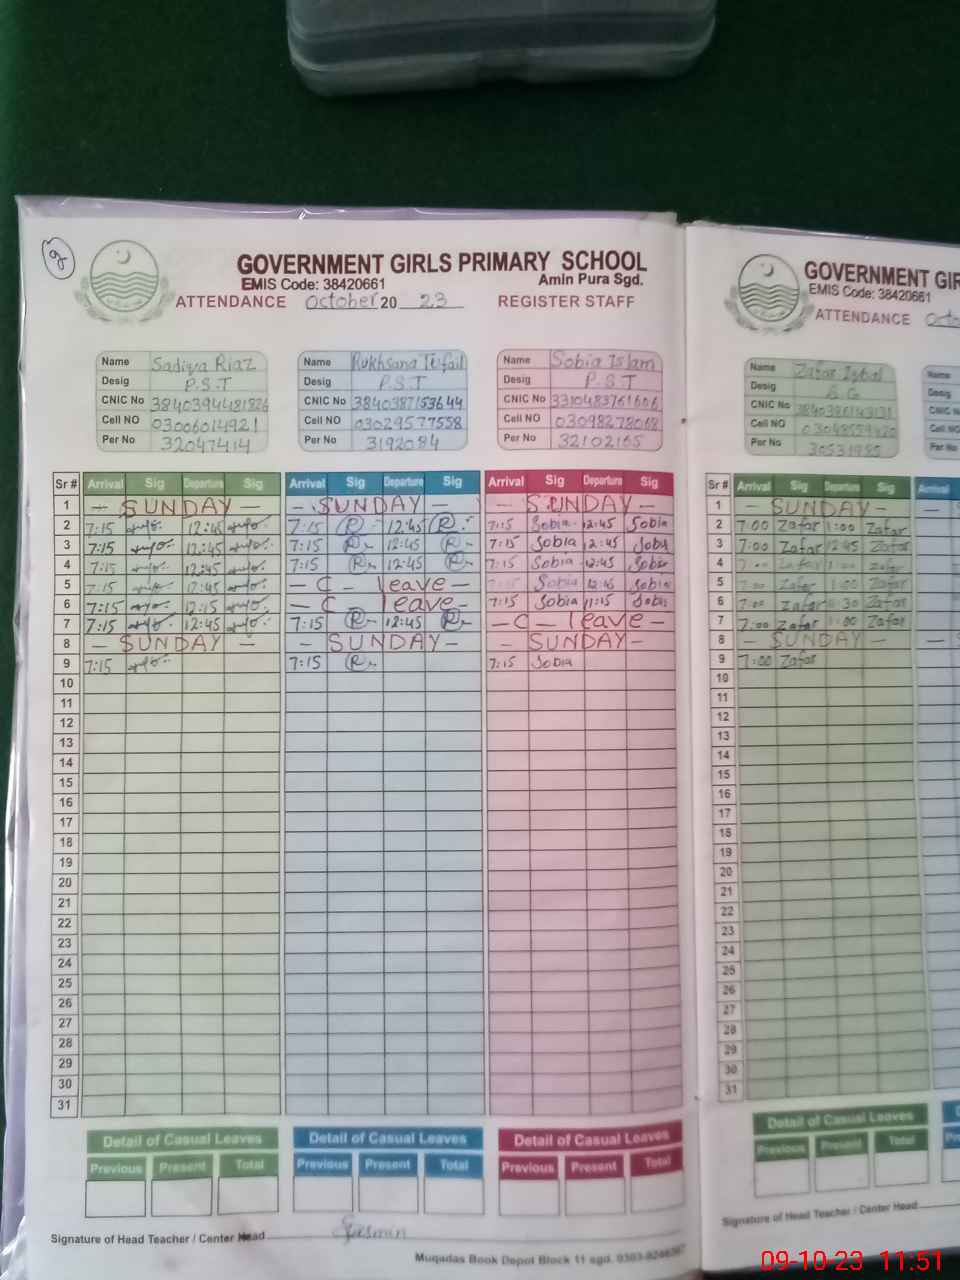 GOVERNMENT GIRLS PRIMARY SCHOOL
EMIS Code: 38420661 Amin Pura Sgd.
ATTENDANCE October 20 23 REGISTER STAFF
Name Sadiya Riaz Name Rukhsana Tufail Name Sobia Islam
Desig P.S.T Desig P.S.T Desig P.S.T
CNIC No CNIC No 3840387153644 CNIC No
Cell NO 03006014921 Cell NO 03029577558 Cell NO 03098278068
Per No 32047414 Per No 3192084 Per No 32102165
Sr # Arrival Sig Departure Sig Arrival Sig Departure Sig Arrival Sig Departure Sig
1 - SUNDAY - - SUNDAY - - SUNDAY -
2 7:15 12:45 7:15 R 12:45 R 7:15 Sobia 12:45 Sobia
3 7:15 12:45 7:15 R 12:45 R 7:15 Sobia 12:45 Sobia
4 7:15 12:45 7:15 R 12:45 R 7:15 Sobia 12:45 Sobia
5 7:15 12:45 - C - leave - Sobia 12:45 Sobia
6 7:15 - C - leave - 7:15 Sobia 11:15 Sobia
7 7:15 12:45 7:15 R 12:45 R - C - leave -
8 - SUNDAY - - SUNDAY - - SUNDAY -
9 7:15 7:15 R 7:15 Sobia
10
11
12
13
14
15
16
17
18
19
20
21
22
23
24
25
26
27
28
29
30
31
Detail of Casual Leaves Detail of Casual Leaves Detail of Casual Leaves
Previous Present Total Previous Present Total Previous Present Total
Signature of Head Teacher / Center Head
Muqadas Book Depot Block 11 sgd.
GOVERNMENT
EMIS Code: 38420661
ATTENDANCE
Name Zafar Iqbal Name
Desig Desig
CNIC No CNIC
Cell NO Cell NO
Per No 30531985 Per No
Sr # Arrival Sig Departure Sig Arrival
1 - SUNDAY -
2 7:00 Zafar 1:00 Zafar
3 7:00 Zafar 12:45 Zafar
4 Zafar Zafar
5 Zafar Zafar
6 Zafar Zafar
7 7:00 Zafar 1:00 Zafar
8 - SUNDAY -
9 7:00 Zafar
10
11
12
13
14
15
16
17
18
19
20
21
22
23
24
25
26
27
28
29
30
31
Detail of Casual Leaves
Previous Present Total
Signature of Head Teacher / Center Head
09-10-23 11:51